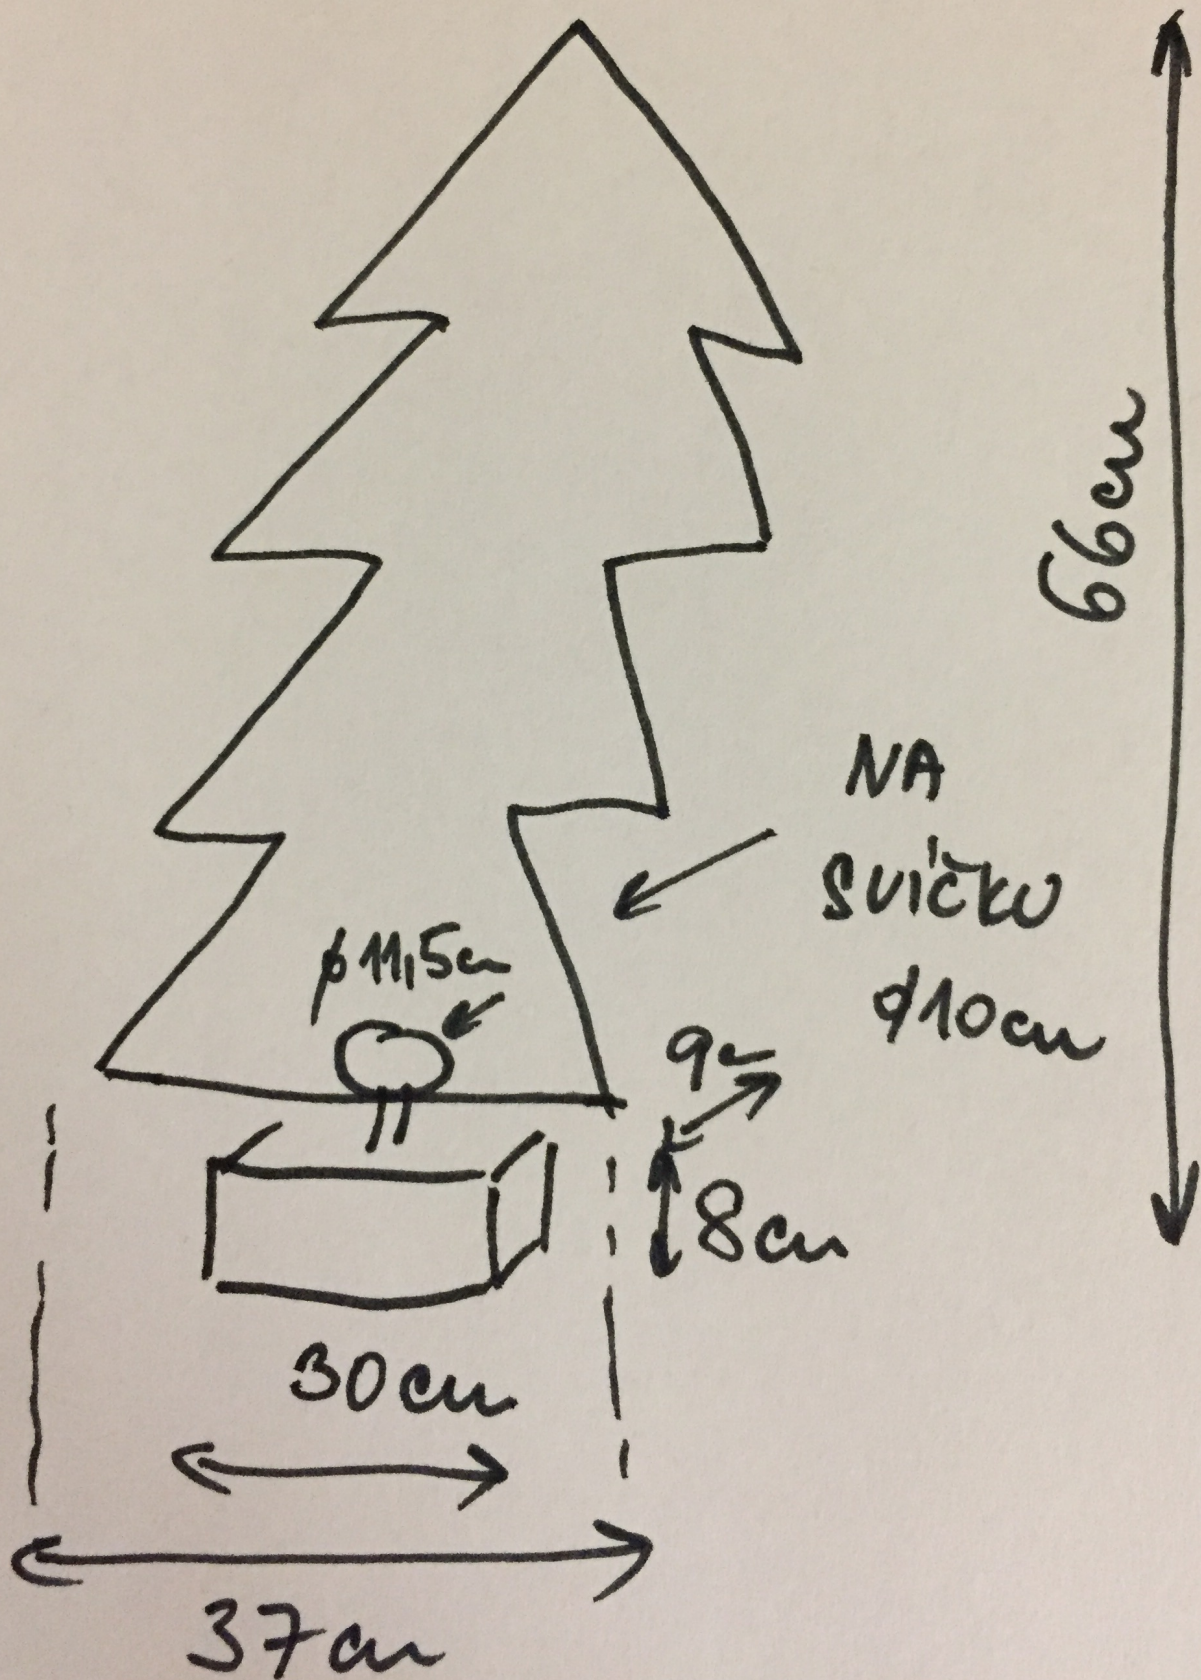 66cm
NA
SVÍČKU
ϕ10cm
ϕ11,5cm
9cm
8cm
30cm
37cm